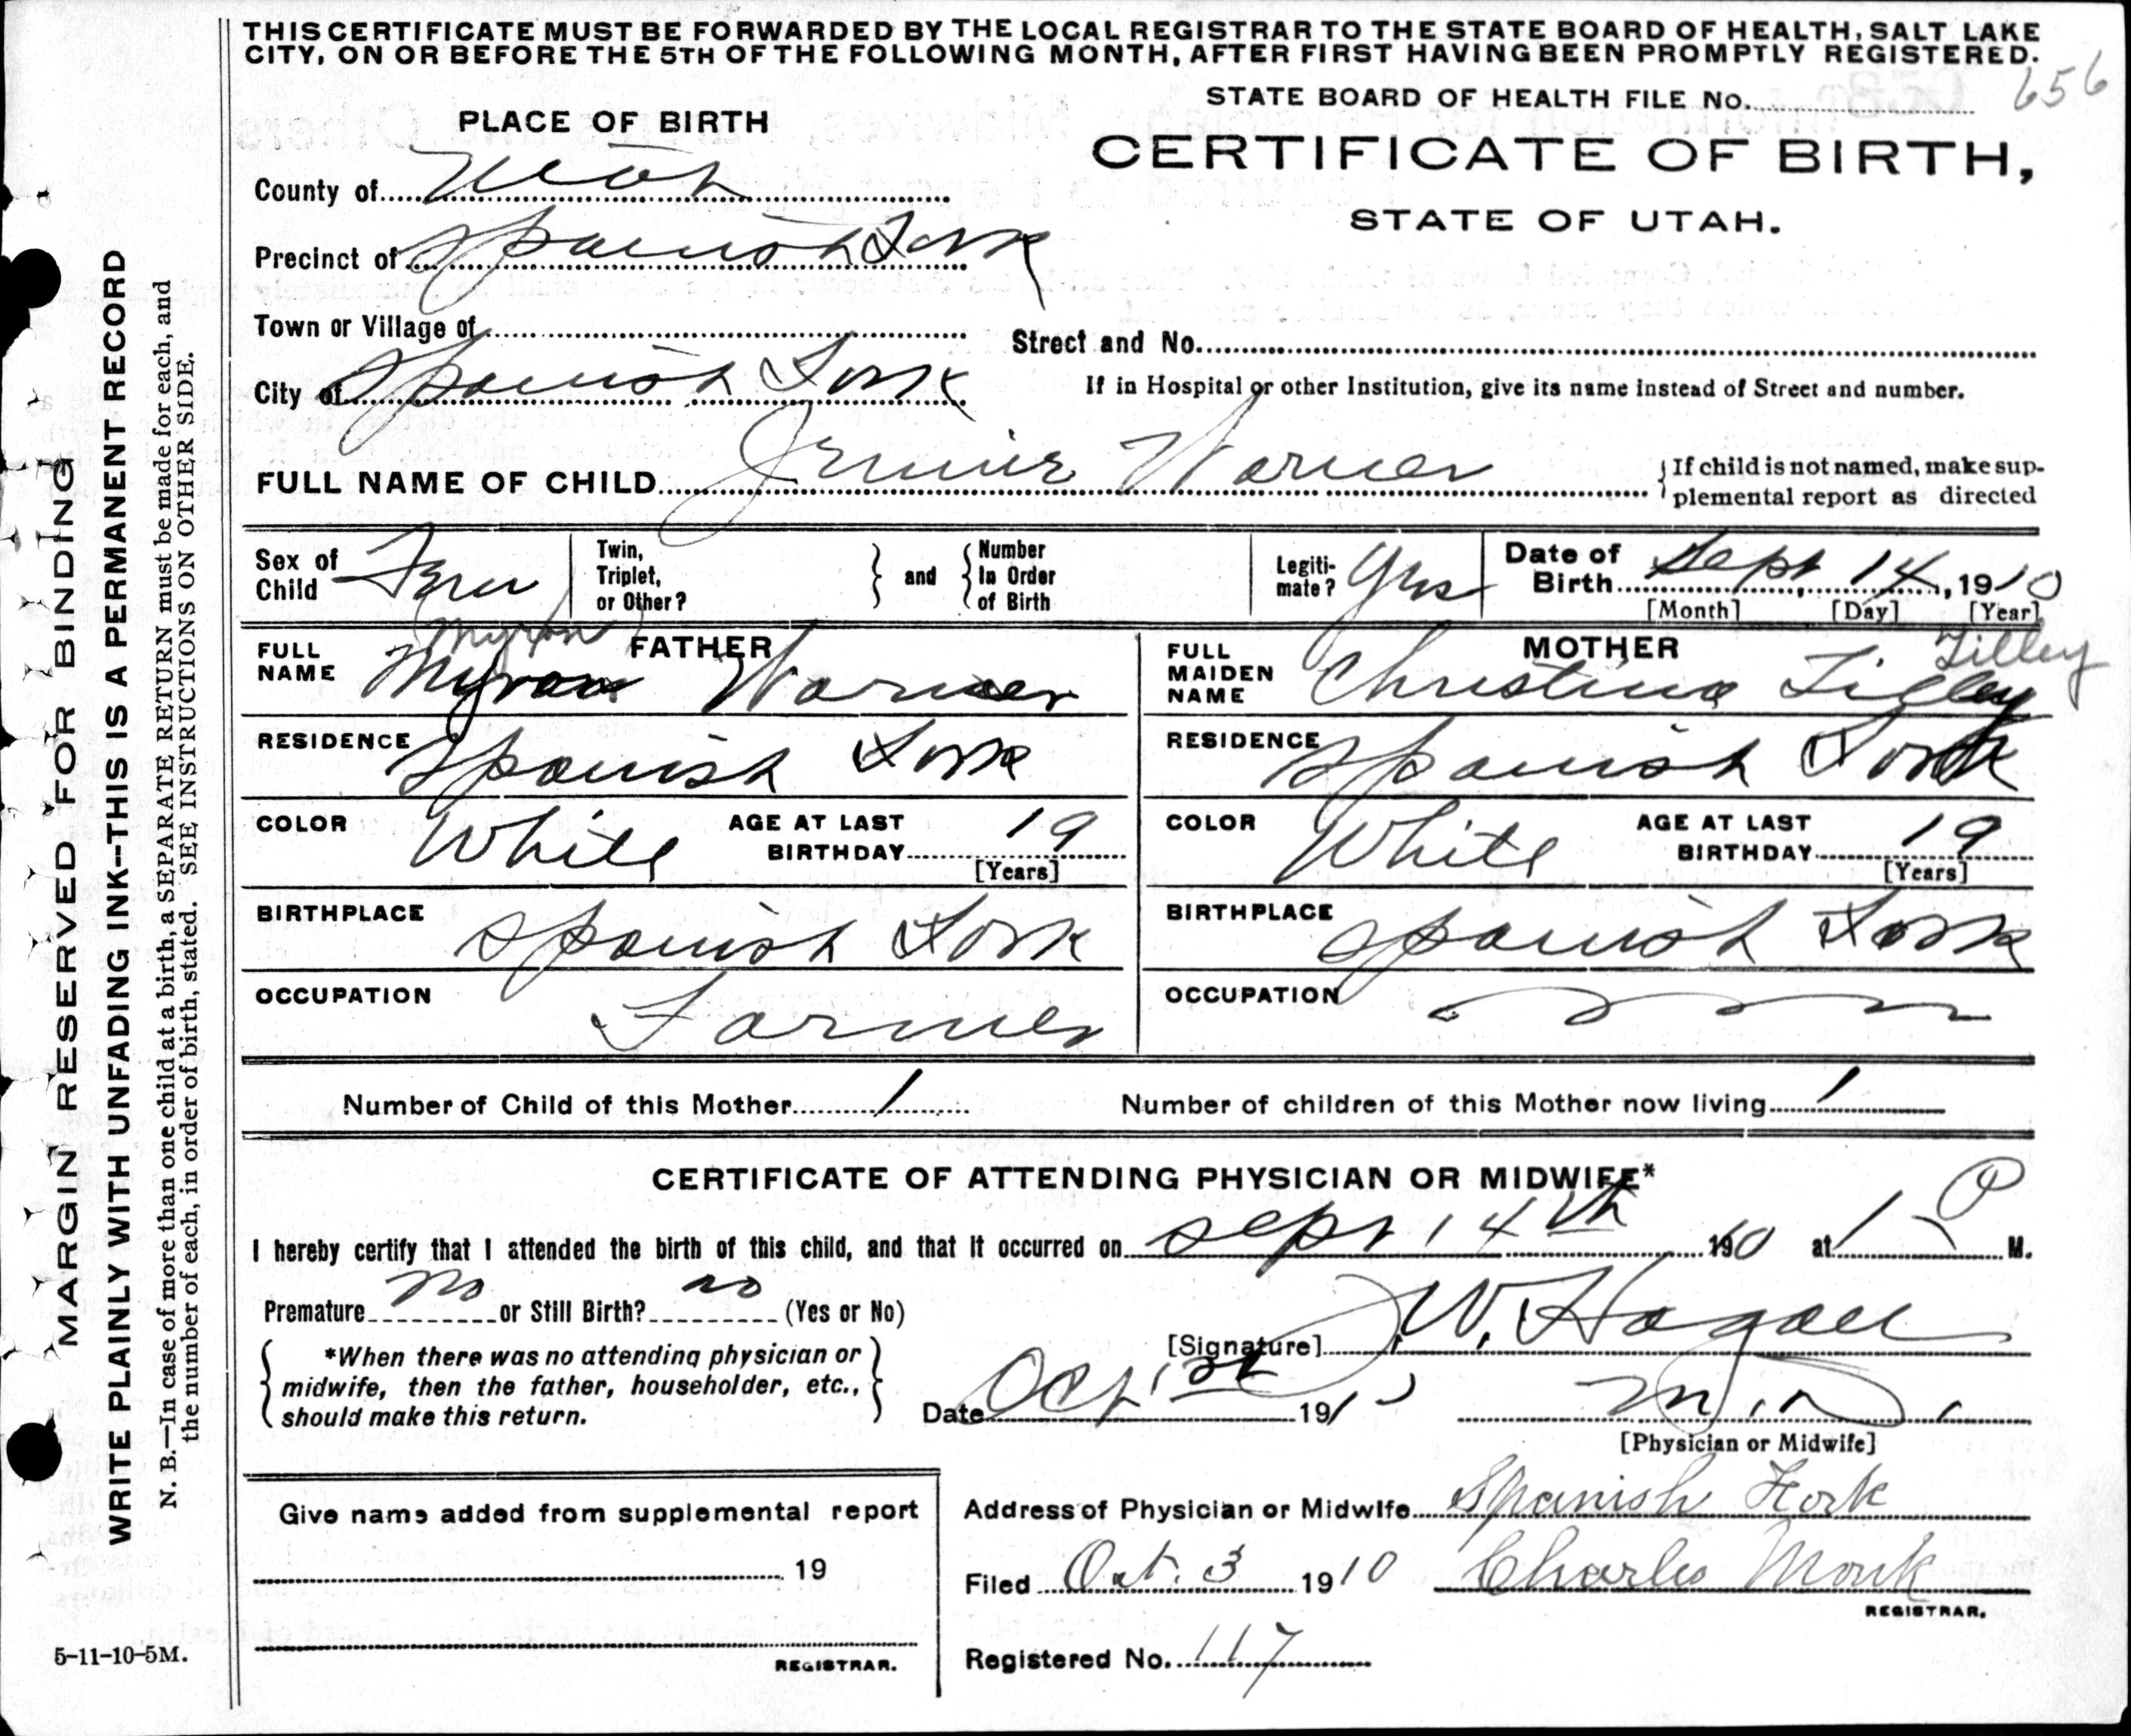 THIS CERTIFICATE MUST BE FORWARDED BY THE LOCAL REGISTRAR TO THE STATE BOARD OF HEALTH, SALT LAKE
CITY, ON OR BEFORE THE 5TH OF THE FOLLOWING MONTH, AFTER FIRST HAVING BEEN PROMPTLY REGISTERED.
656
STATE BOARD OF HEALTH FILE No.
PLACE OF BIRTH
CERTIFICATE OF BIRTH,
STATE OF UTAH.
County of Utah
Precinct of Spanish Fork
Town or Village of
Street and No.
City of Spanish Fork
If in Hospital or other Institution, give its name instead of Street and number.
FULL NAME OF CHILD Jennie Warner
If child is not named, make sup-
plemental report as directed
Sex of Child Fem
Twin, Triplet, or Other?
and
Number In Order of Birth
Legiti-mate? Yes
Date of Birth Sept 14, 1910
[Month] [Day] [Year]
FATHER
(Myron)
FULL NAME Myron Warner
RESIDENCE Spanish Fork
COLOR White AGE AT LAST BIRTHDAY 19
[Years]
BIRTHPLACE Spanish Fork
OCCUPATION Farmer
MOTHER
Tilley
FULL MAIDEN NAME Christina Tilley
RESIDENCE Spanish Fork
COLOR White AGE AT LAST BIRTHDAY 19
[Years]
BIRTHPLACE Spanish Fork
OCCUPATION
Number of Child of this Mother 1 Number of children of this Mother now living 1
CERTIFICATE OF ATTENDING PHYSICIAN OR MIDWIFE*
I hereby certify that I attended the birth of this child, and that it occurred on Sept 14th 190 at 1 P M.
Premature no or Still Birth? no (Yes or No)
[Signature] J.W. Hagan
*When there was no attending physician or
midwife, then the father, householder, etc.,
should make this return.
Date Oct 1st 191
M.D.
[Physician or Midwife]
Give name added from supplemental report
19
REGISTRAR.
Address of Physician or Midwife Spanish Fork
Filed Oct. 3 1910 Charles Monk
REGISTRAR.
Registered No. 117
MARGIN RESERVED FOR BINDING
WRITE PLAINLY WITH UNFADING INK--THIS IS A PERMANENT RECORD
N. B.—In case of more than one child at a birth, a SEPARATE RETURN must be made for each, and
the number of each, in order of birth, stated. SEE INSTRUCTIONS ON OTHER SIDE.
5-11-10-5M.